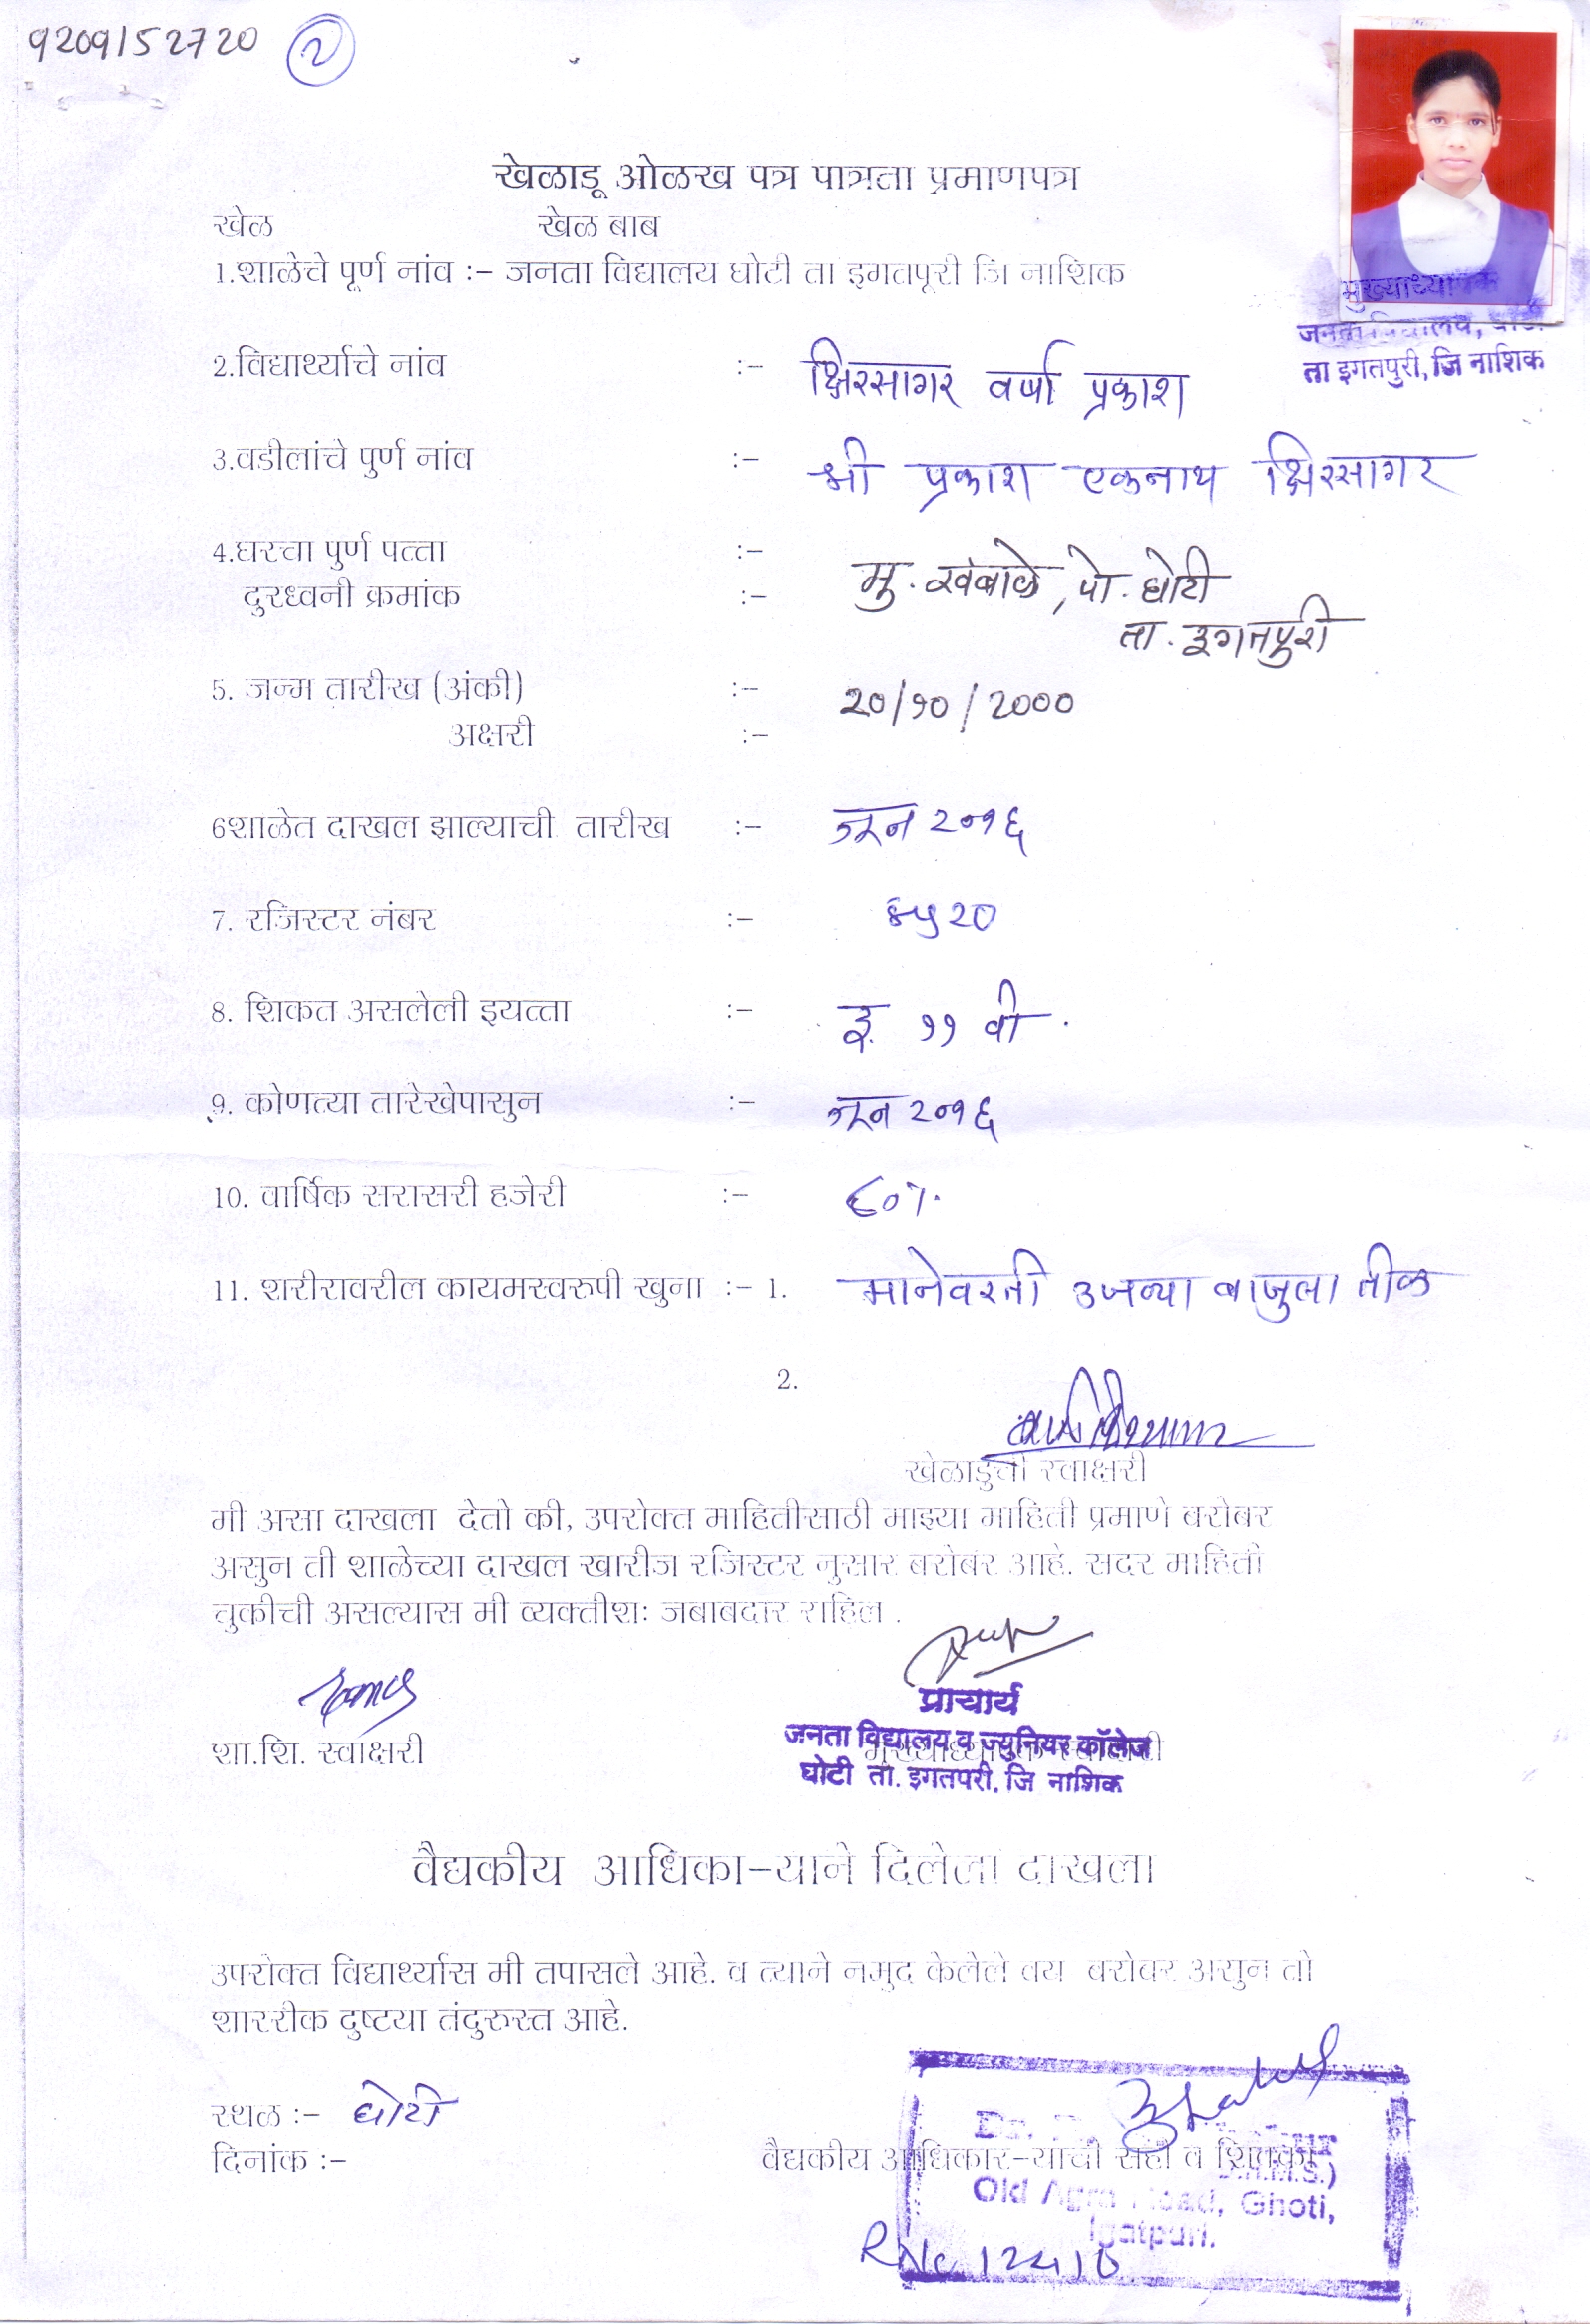 9209152720 2
खेळाडू ओळख पत्र पात्रता प्रमाणपत्र
खेळ खेळ बाब
1.शाळेचे पूर्ण नांव :- जनता विद्यालय घोटी ता इगतपूरी जि नाशिक
मुख्याध्यापक
जनता विद्यालय, घोटी
ता इगतपुरी, जि नाशिक
2.विद्यार्थ्याचे नांव :- क्षिरसागर वर्षा प्रकाश
3.वडीलांचे पुर्ण नांव :- श्री प्रकाश एकनाथ क्षिरसागर
4.घरचा पुर्ण पत्ता :- मु. खंबाळे, पो. घोटी
दुरध्वनी क्रमांक :- ता. इगतपुरी
5. जन्म तारीख (अंकी) :- २०/१०/2000
अक्षरी :-
6शाळेत दाखल झाल्याची तारीख :- जून २०१६
7. रजिस्टर नंबर :-
8. शिकत असलेली इयत्ता :- इ. ११ वी.
9. कोणत्या तारेखेपासुन :- जून २०१६
10. वार्षिक सरासरी हजेरी :-
11. शरीरावरील कायमस्वरुपी खुना :- 1. मानेवरती उजव्या बाजुला तीळ
2.
खेळाडुची स्वाक्षरी
मी असा दाखला देतो की, उपरोक्त माहितीसाठी माझ्या माहिती प्रमाणे बरोबर
असुन ती शाळेच्या दाखल खारीज रजिस्टर नुसार बरोबर आहे. सदर माहिती
चुकीची असल्यास मी व्यक्तीशः जबाबदार राहिल .
प्राचार्य
शा.शि. स्वाक्षरी जनता विद्यालय व ज्युनियर कॉलेज
घोटी ता. इगतपरी. जि नाशिक
वैद्यकीय आधिका-याने दिलेला दाखला
उपरोक्त विद्यार्थ्यास मी तपासले आहे. व त्याने नमुद केलेले वय बरोबर असुन तो
शाररीक दुष्टया तंदुरुस्त आहे.
स्थळ :- घोटी
दिनांक :- वैद्यकीय आधिकार-यांची सही व शिक्का
Old Agra Road, Ghoti,
Igatpuri.